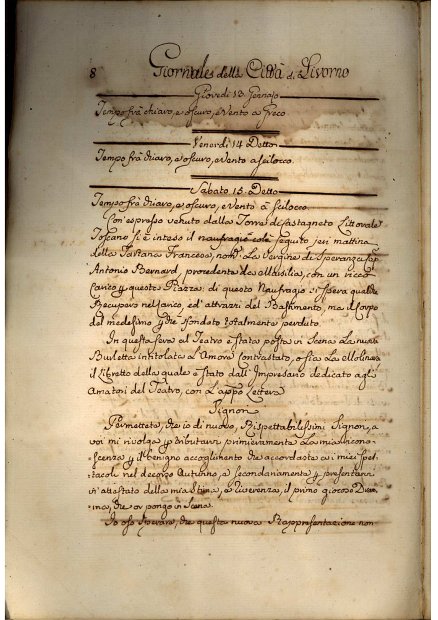 8 Giornale della Città di Livorno
Giovedì 13 Gennajo
Tempo frà chiaro, e oscuro, e Vento a Greco.
Venerdì 14 Detto
Tempo frà chiaro, e oscuro, e Vento a Scilocco.
Sabato 15 Detto
Tempo frà chiaro, e oscuro, e Vento a Scilocco.
Con espresso venuto dalla Torre di Castagneto Littorale
Toscano si è inteso il naufragio colà seguito jeri mattina
della Tartana Francese, nom.ta La Vergine di Speranza
Antonio Bernard, procedente da Marsilia, con un ricco
Carico p questa Piazza: di questo Naufragio si spera qualche
Recupero nel carico, ed attrazzi del Bastimento, ma il corpo
del medesimo p che sfondato totalmente perduto.
In questa sera al Teatro è stata posta in Scena La nuova
Burletta intitolata L'Amore Contrastato, o sia La Molinara
il Libretto della quale è stato dall' Impresario dedicato agli
Amatori del Teatro, con L'app.o Lettera
Signori
Permettete, che io di nuovo, Rispettabilissimi Signori, a
voi mi rivolga p tributarvi primieramente La mia ricono-
scenza p il benigno accoglimento che accordaste a i miei spet-
tacoli nel decorso Autunno, e secondariamente p presentarvi
in attestato della mia stima, e riverenza, il primo giocoso Dram-
ma, che or pongo in Scena.
Io oso sperare, che questa nuova Rappresentazione non